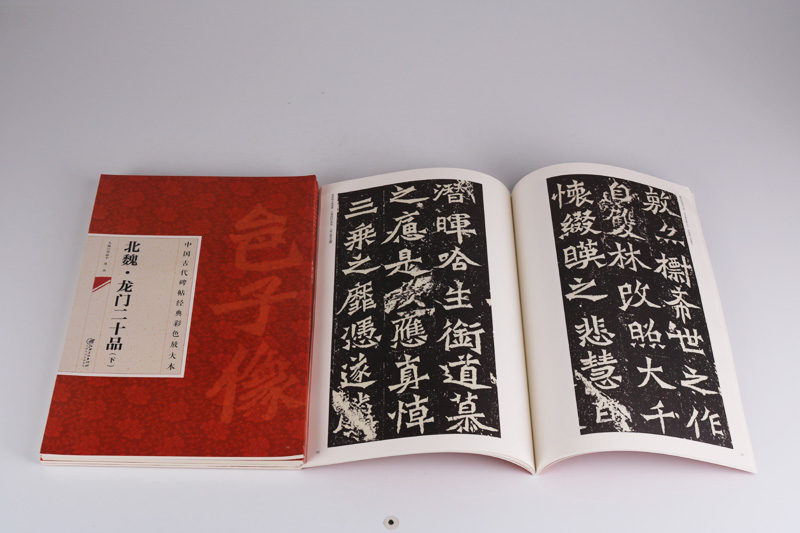 中国古代碑帖经典彩色放大本
北魏·龙门二十品（下）
邑子像
敷亦標希世之作
自雙林改照大千
懷綴暎之悲慧日
潛暉唅生銜道慕
之痛是以應真悼
三乘之靡憑遂騰